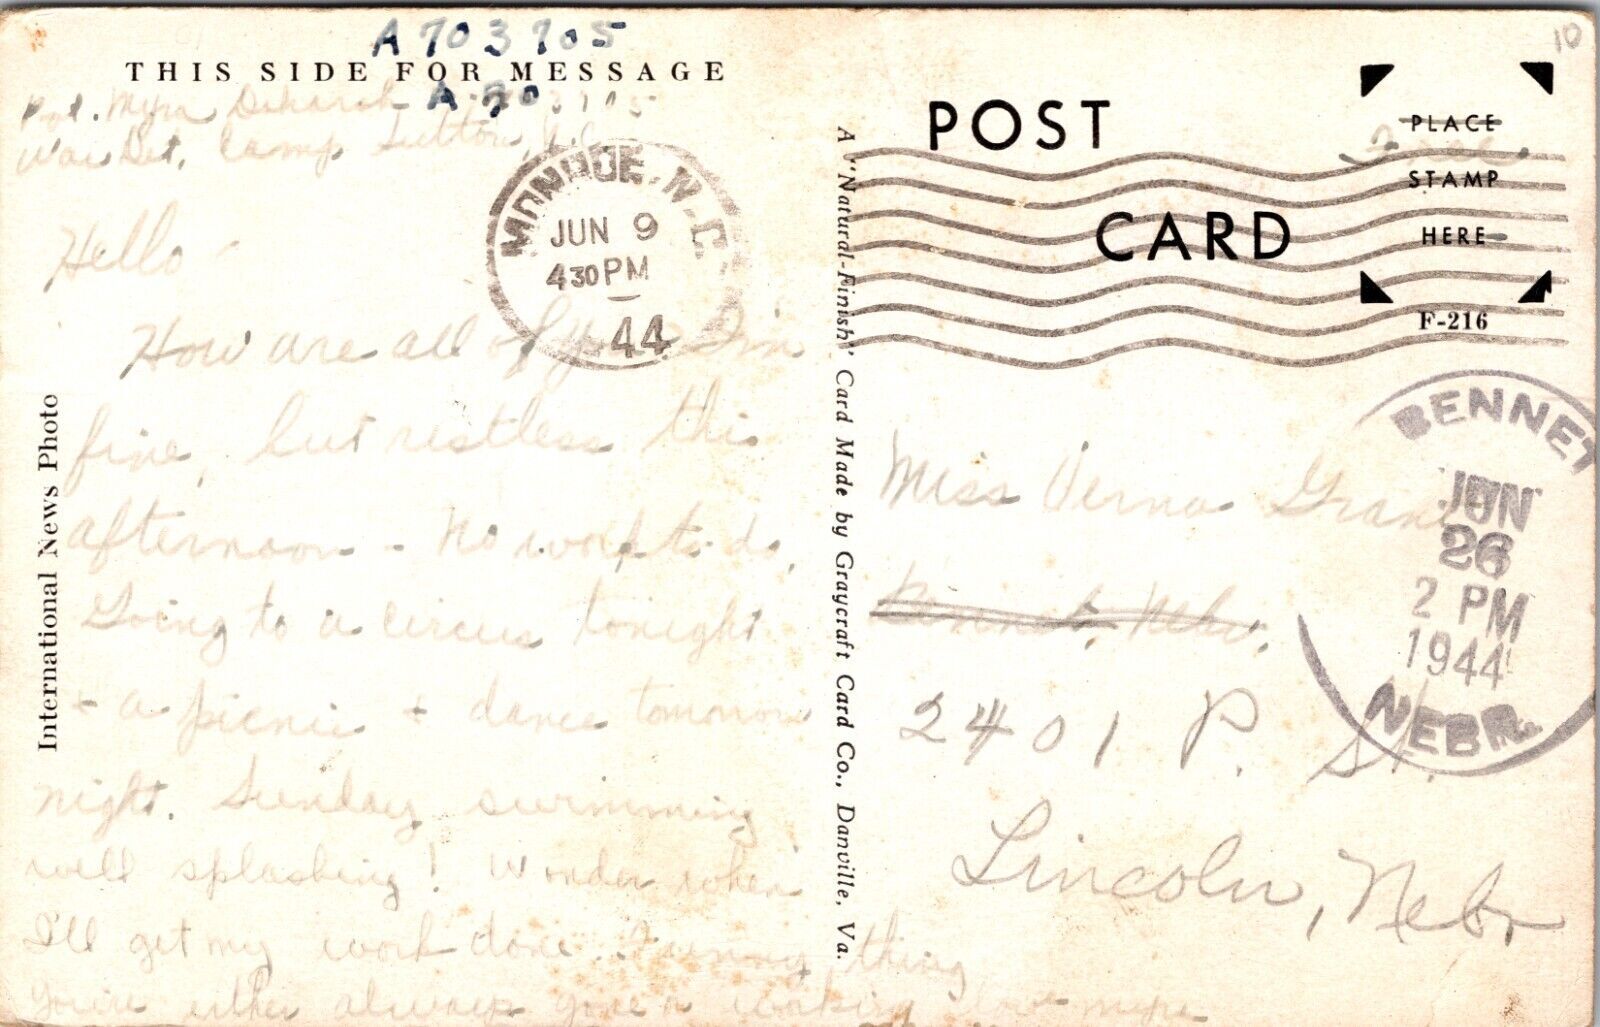 A703705
THIS SIDE FOR MESSAGE
Pvt. Myra A 70
Wac Det, Camp Sutton, N.C.
MONROE, N.C.
JUN 9
430PM
44
Hello -
How are all of I'm
fine, but restless this
afternoon - No work to do.
Going to a circus tonight
+ a picnic + dance tomorrow
night. Sunday swimming
well splashing! Wonder when
I'll get my work done. Funny thing
you're either always gone or working Love Myra
International News Photo
A "Natural-Finish" Card Made by Graycraft Card Co., Danville, Va.
POST
CARD
10
Free
PLACE
STAMP
HERE
F-216
BENNET
JUN
26
2 PM
1944
NEBR.
Miss Verna
Bennet, Nebr.
2401 P. St.
Lincoln, Nebr